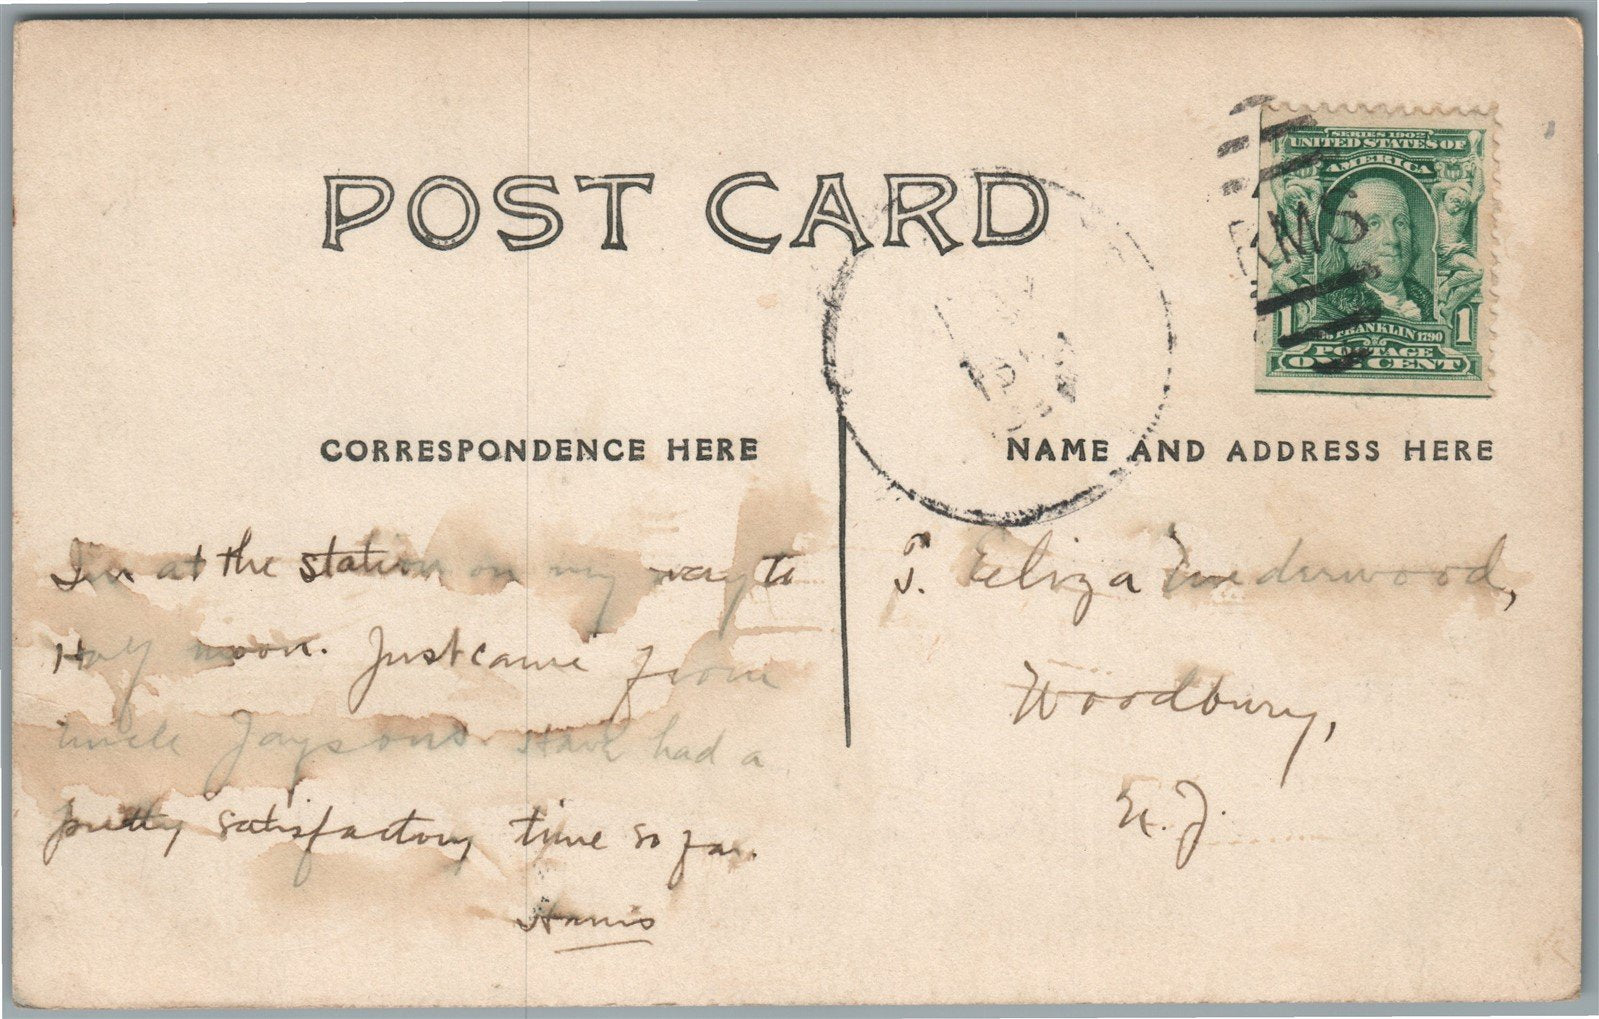 POST CARD
SERIES 1902
UNITED STATES OF
AMERICA
RMS
1 FRANKLIN 1790 1
POSTAGE
ONE CENT
CORRESPONDENCE HERE
NAME AND ADDRESS HERE
I'm at the station on my way to
Half moon. Just came from
Uncle Jaysons. Have had a
pretty satisfactory time so far.
Harris
J. Eliza Underwood,
Woodbury,
N. J.